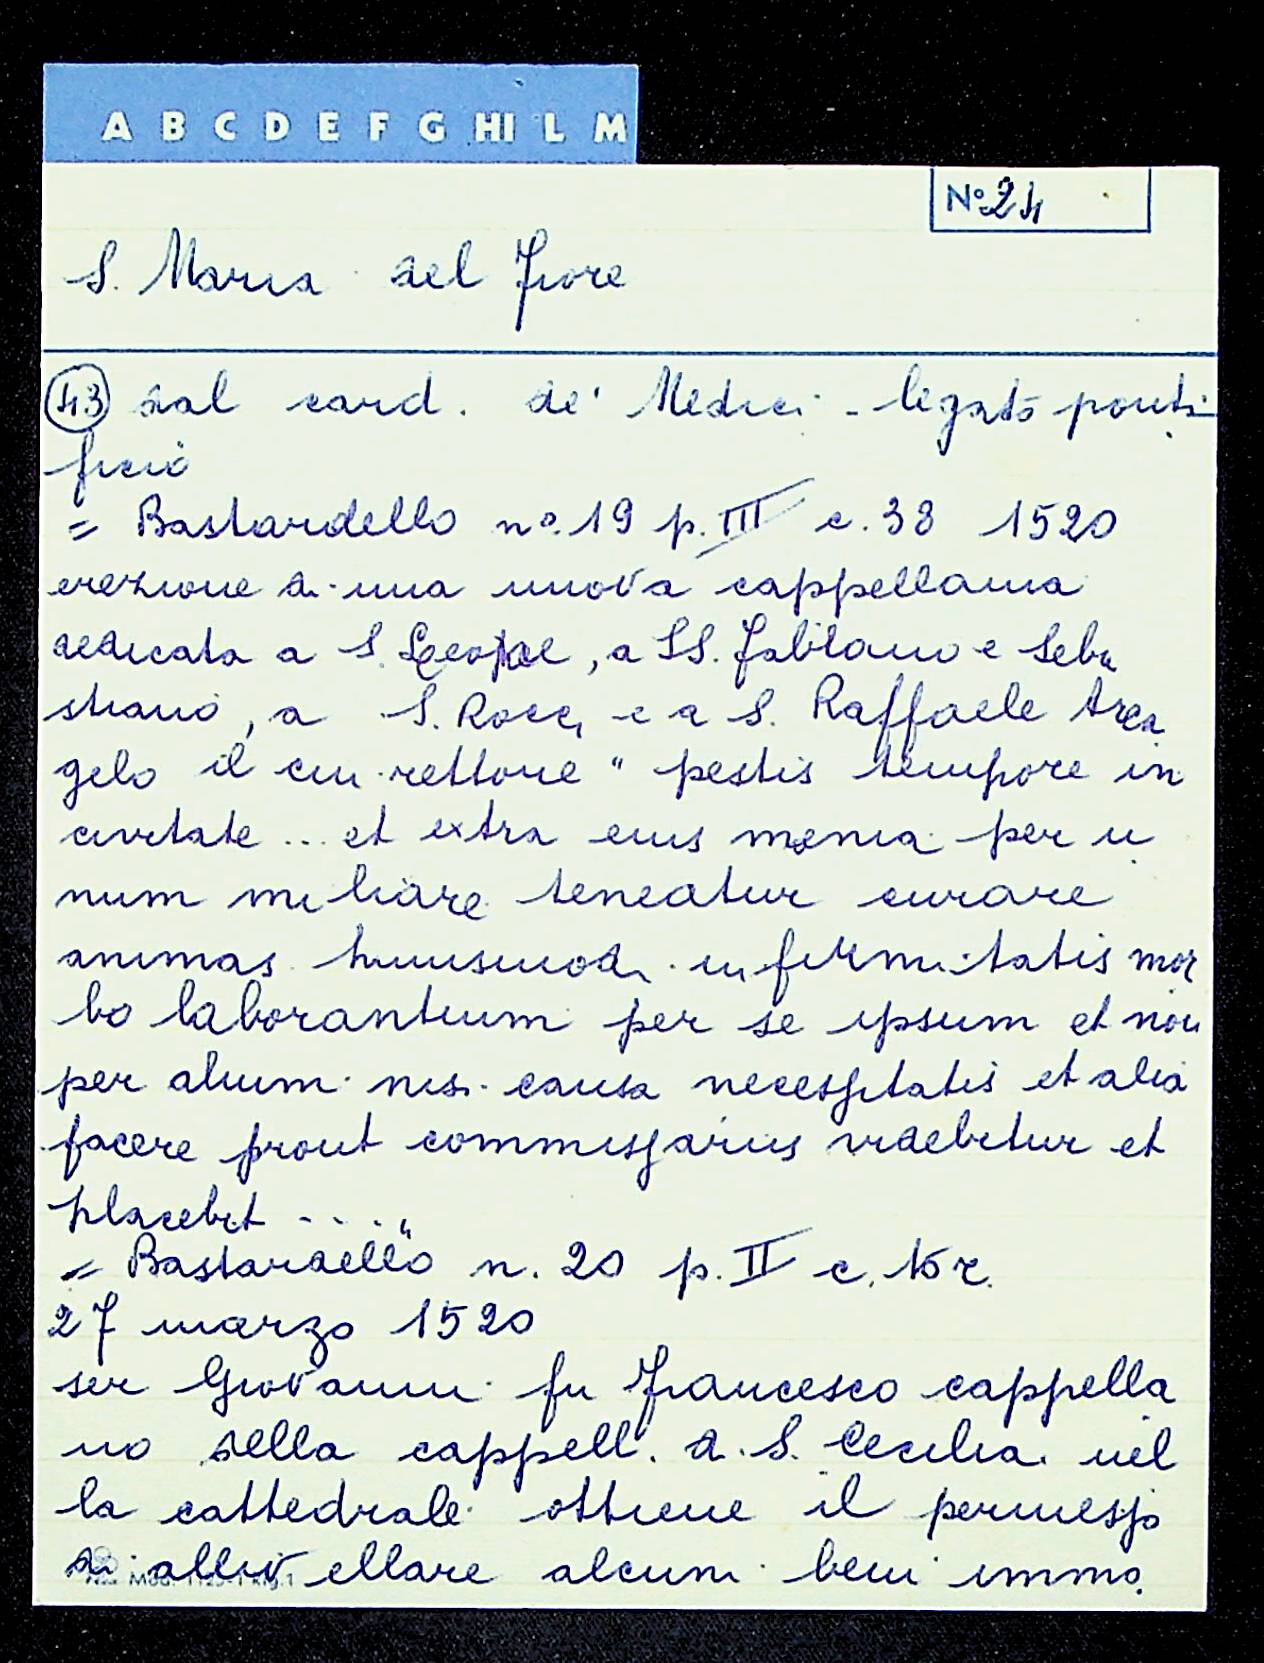 A B C D E F G HI L M
N° 24
S. Maria del Fiore
43 dal card. de' Medici - legato ponti
ficio
= Bastardello n°. 19 p. III c. 38 1520
erezione di una nuova cappellania
dedicata a S. , a SS. Fabiano e Seba
stiano, a S. Rocco e a S. Raffaele Arca
gelo il cui rettore " pestis tempore in
civitate ... et extra eius menia per u
num miliare teneatur curare
animas huiusmodi infirmitatis mor
bo laborantium per se ipsum et non
per alium nisi causa necessitatis et alia
facere prout commissarius videbitur et
placebit ...."
= Bastardello n. 20 p. II c. 15 r.
27 marzo 1520
ser Giovanni fu Francesco cappella
no della cappell. di S. Cecilia nel
la cattedrale ottiene il permesso
di allivellare alcuni beni immo